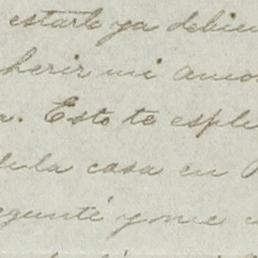 estarlo ya debien
herir mi amor
. Esto te esple
de la casa en
egunté y me